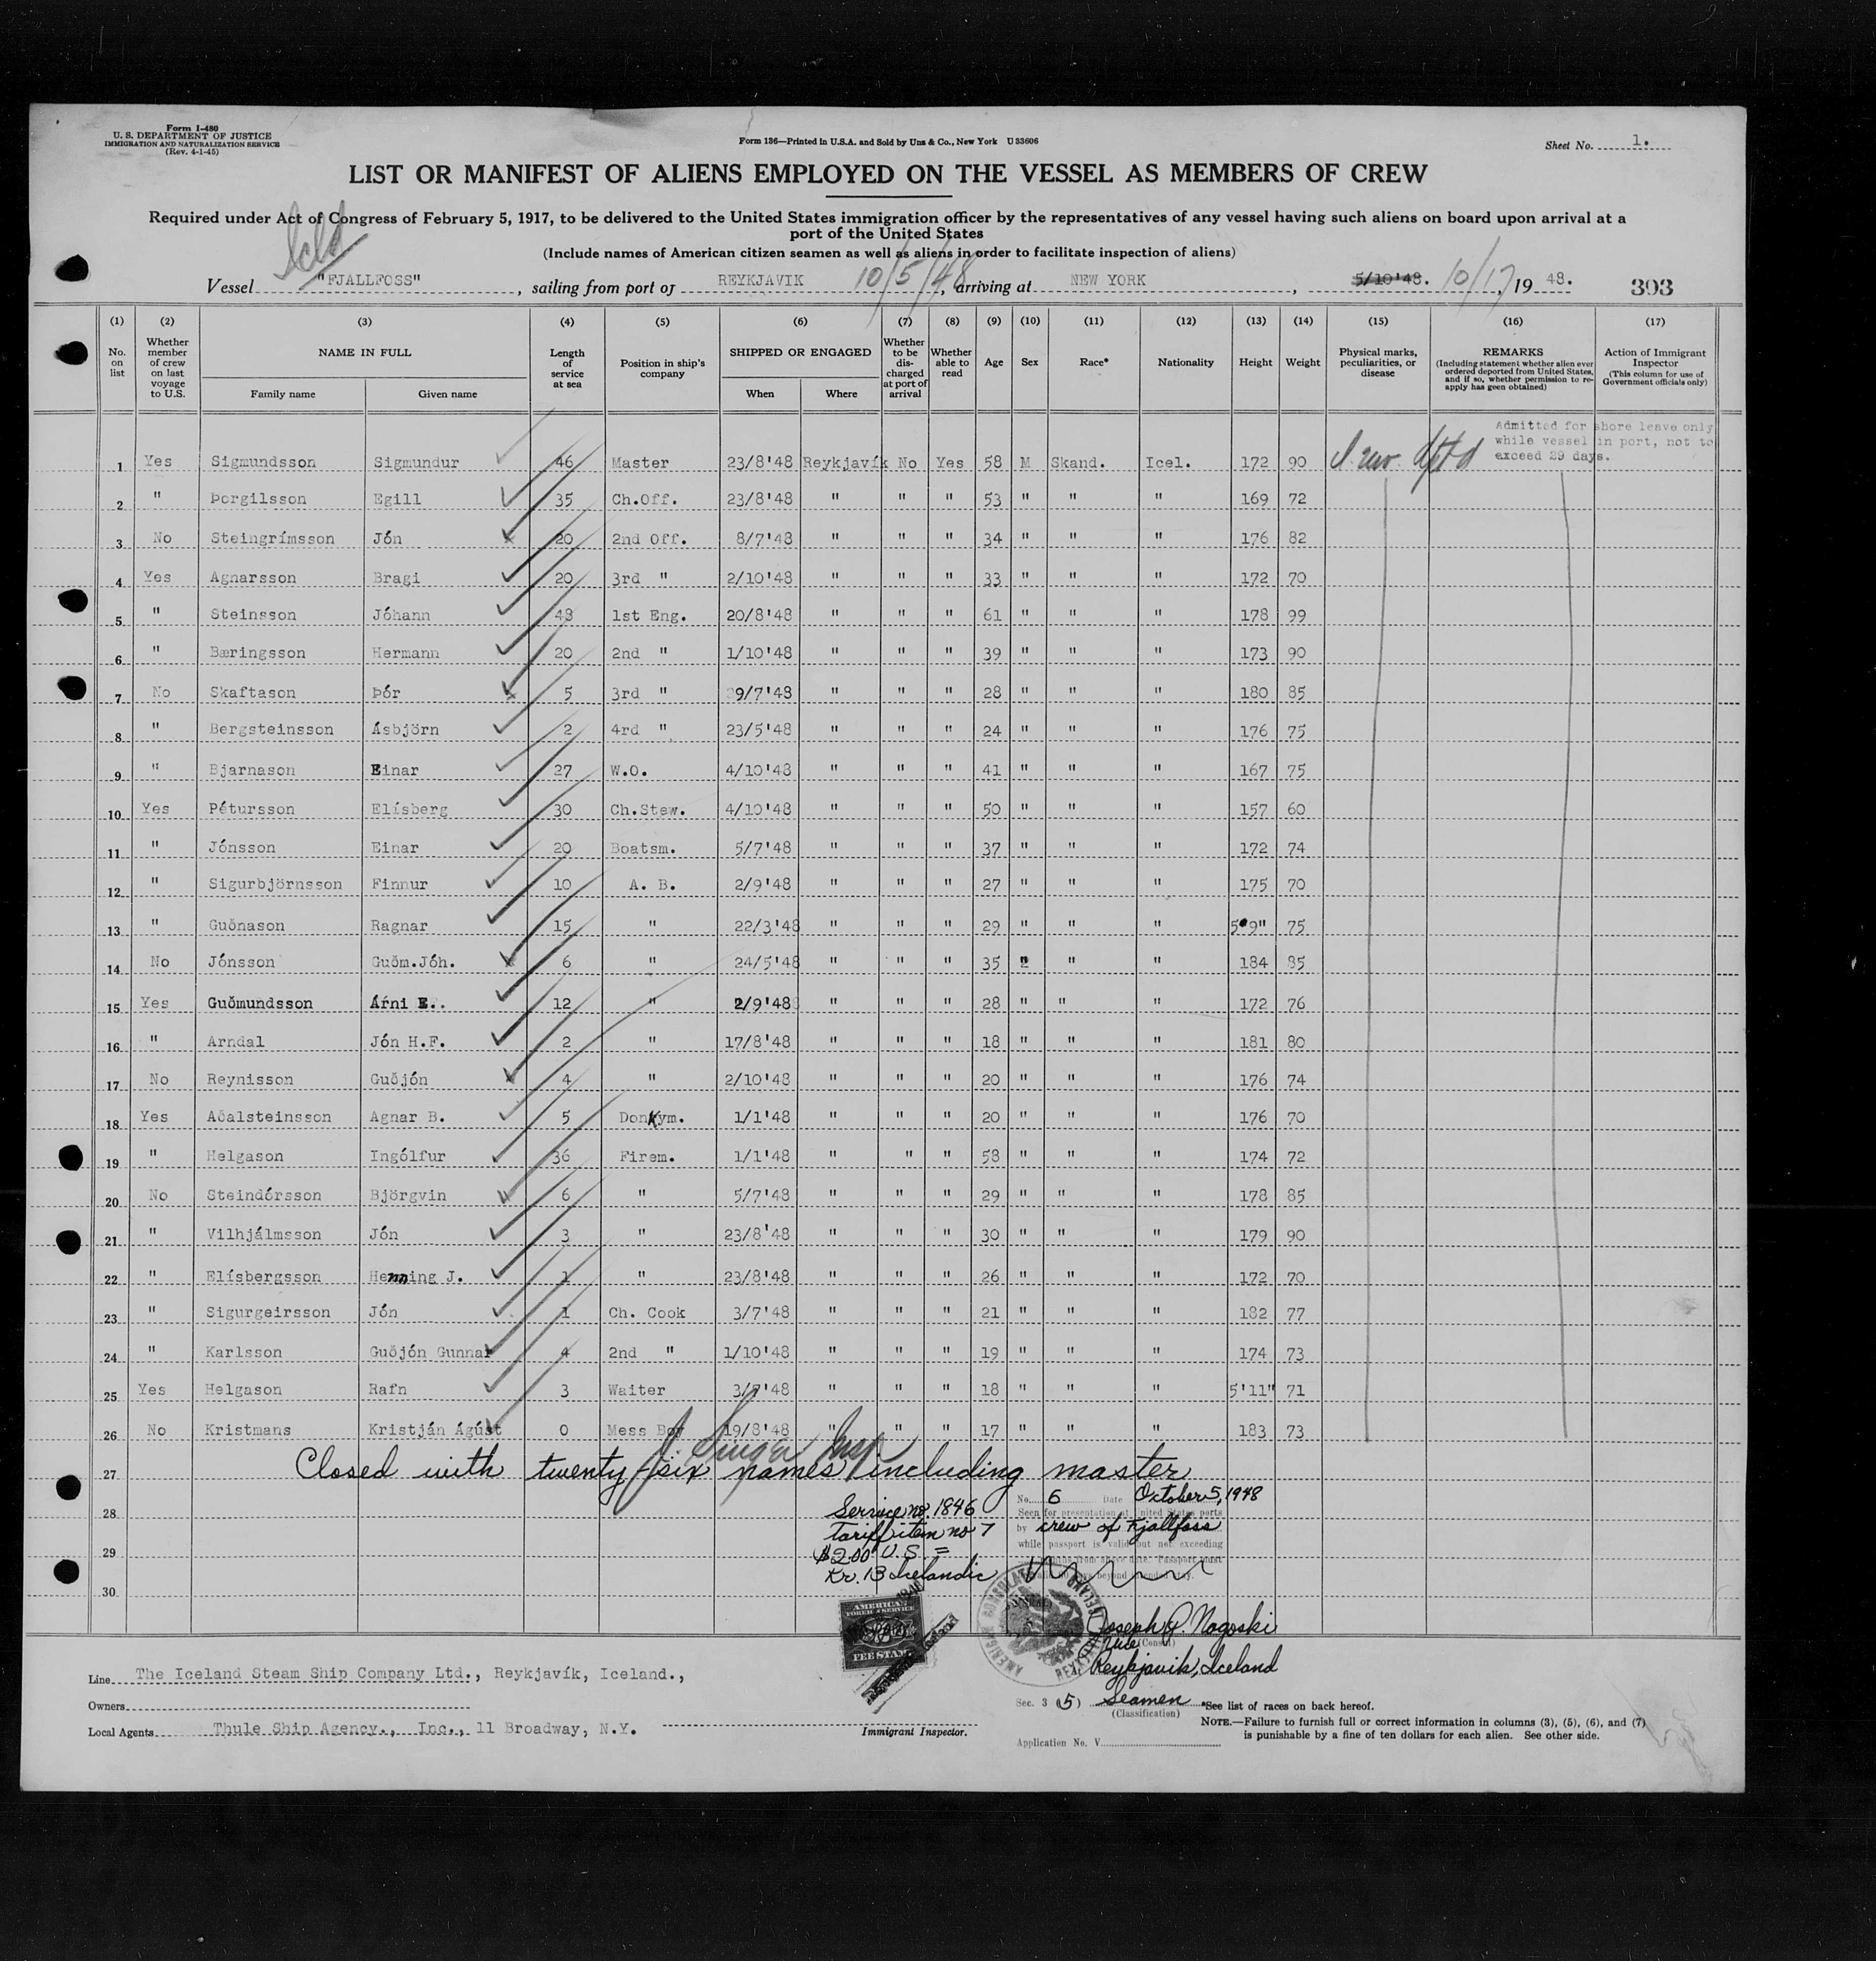 Form I-480
U. S. DEPARTMENT OF JUSTICE
IMMIGRATION AND NATURALIZATION SERVICE
(Rev. 4-1-45)
Form 136—Printed in U.S.A. and Sold by Unz & Co., New York U 33606
Sheet No. 1.
LIST OR MANIFEST OF ALIENS EMPLOYED ON THE VESSEL AS MEMBERS OF CREW
Required under Act of Congress of February 5, 1917, to be delivered to the United States immigration officer by the representatives of any vessel having such aliens on board upon arrival at a
port of the United States
(Include names of American citizen seamen as well as aliens in order to facilitate inspection of aliens)
Vessel "FJALLFOSS", sailing from port of REYKJAVIK 10/5/48, arriving at NEW YORK, 5/10'48. 10/17, 19 48. 303
(1) (2) (3) (4) (5) (6) (7) (8) (9) (10) (11) (12) (13) (14) (15) (16) (17)
No. on list
Whether member of crew on last voyage to U.S.
NAME IN FULL
Family name Given name
Length of service at sea
Position in ship's company
SHIPPED OR ENGAGED
When Where
Whether to be discharged at port of arrival
Whether able to read
Age
Sex
Race*
Nationality
Height
Weight
Physical marks, peculiarities, or disease
REMARKS
(Including statement whether alien ever ordered deported from United States, and if so, whether permission to re-apply has geen obtained)
Action of Immigrant Inspector
(This column for use of Government officials only)
Admitted for shore leave only
while vessel in port, not to
exceed 29 days.
1 Yes Sigmundsson Sigmundur 46 Master 23/8'48 Reykjavík No Yes 58 M Skand. Icel. 172 90
2 " Þorgilsson Egill 35 Ch.Off. 23/8'48 " " " 53 " " " 169 72
3 No Steingrímsson Jón 20 2nd Off. 8/7'48 " " " 34 " " " 176 82
4 Yes Agnarsson Bragi 20 3rd " 2/10'48 " " " 33 " " " 172 70
5 " Steinsson Jóhann 43 1st Eng. 20/8'48 " " " 61 " " " 178 99
6 " Bæringsson Hermann 20 2nd " 1/10'48 " " " 39 " " " 173 90
7 No Skaftason Þór 5 3rd " 29/7'48 " " " 28 " " " 180 85
8 " Bergsteinsson Ásbjörn 2 4rd " 23/5'48 " " " 24 " " " 176 75
9 " Bjarnason Einar 27 W.O. 4/10'48 " " " 41 " " " 167 75
10 Yes Pétursson Elísberg 30 Ch.Stew. 4/10'48 " " " 50 " " " 157 60
11 " Jónsson Einar 20 Boatsm. 5/7'48 " " " 37 " " " 172 74
12 " Sigurbjörnsson Finnur 10 A. B. 2/9'48 " " " 27 " " " 175 70
13 " Guðnason Ragnar 15 " 22/3'48 " " " 29 " " " 5'9" 75
14 No Jónsson Guðm.Jóh. 6 " 24/5'48 " " " 35 " " " 184 85
15 Yes Guðmundsson Árni E. 12 " 2/9'48 " " " 28 " " " 172 76
16 " Arndal Jón H.F. 2 " 17/8'48 " " " 18 " " " 181 80
17 No Reynisson Guðjón 4 " 2/10'48 " " " 20 " " " 176 74
18 Yes Aðalsteinsson Agnar B. 5 Donkym. 1/1'48 " " " 20 " " " 176 70
19 " Helgason Ingólfur 36 Firem. 1/1'48 " " " 58 " " " 174 72
20 No Steindórsson Björgvin 6 " 5/7'48 " " " 29 " " " 178 85
21 " Vilhjálmsson Jón 3 " 23/8'48 " " " 30 " " " 179 90
22 " Elísbergsson Henning J. 1 " 23/8'48 " " " 26 " " " 172 70
23 " Sigurgeirsson Jón 1 Ch. Cook 3/7'48 " " " 21 " " " 182 77
24 " Karlsson Guðjón Gunnar 4 2nd " 1/10'48 " " " 19 " " " 174 73
25 Yes Helgason Rafn 3 Waiter 3/7'48 " " " 18 " " " 5'11" 71
26 No Kristmans Kristján Ágúst 0 Mess Boy 19/8'48 " " " 17 " " " 183 73
27 Closed with twenty-six names including master
28
29
30
J Singer Insp
Service no. 1846
Tariff item no 7
$2.00 U.S =
Kr. 13 Icelandic
No. 6 Date October 5, 1948
Seen for presentation at United States ports
by crew of Fjallfoss
while passport is valid but not exceeding
AMERICAN
FOREIGN SERVICE
FEE STAMP
AMERICAN CONSULATE
REYKJAVIK ICELAND
Joseph P. Nagoski
Vice (Consul)
Reykjavik, Iceland
Sec. 3 (5) Seamen
(Classification)
Application No. V
Line The Iceland Steam Ship Company Ltd., Reykjavík, Iceland.,
Owners
Local Agents Thule Ship Agency., Inc., 11 Broadway, N.Y.
Immigrant Inspector.
*See list of races on back hereof.
NOTE.—Failure to furnish full or correct information in columns (3), (5), (6), and (7)
is punishable by a fine of ten dollars for each alien. See other side.